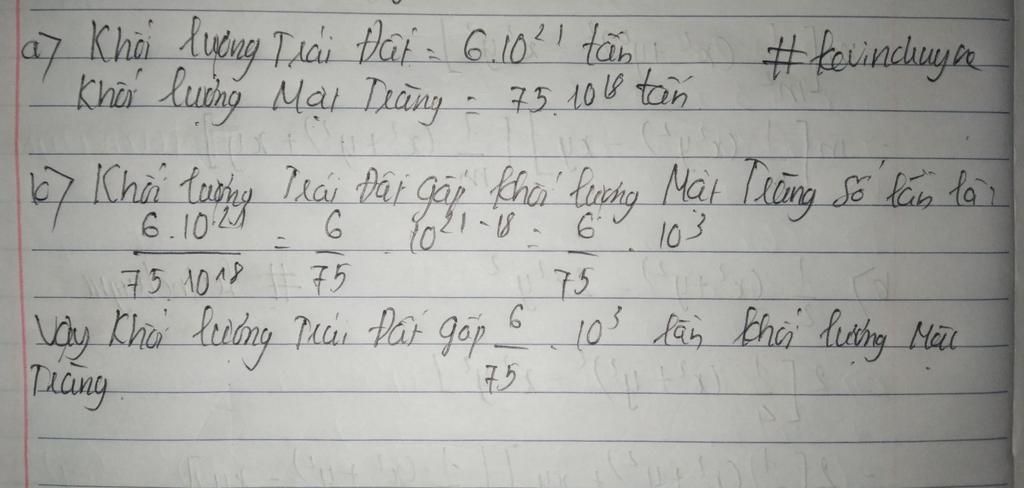 a) Khối lượng Trái Đất = 6.10^21 tấn # kevinchuyre
Khối lượng Mặt Trăng = 75.10^18 tấn
b) Khối lượng Trái Đất gấp khối lượng Mặt Trăng số lần là:
6.10^21 / 75.10^18 = 6/75 . 10^21-18 = 6/75 . 10^3
Vậy khối lượng Trái Đất gấp 6/75 . 10^3 lần khối lượng Mặt
Trăng